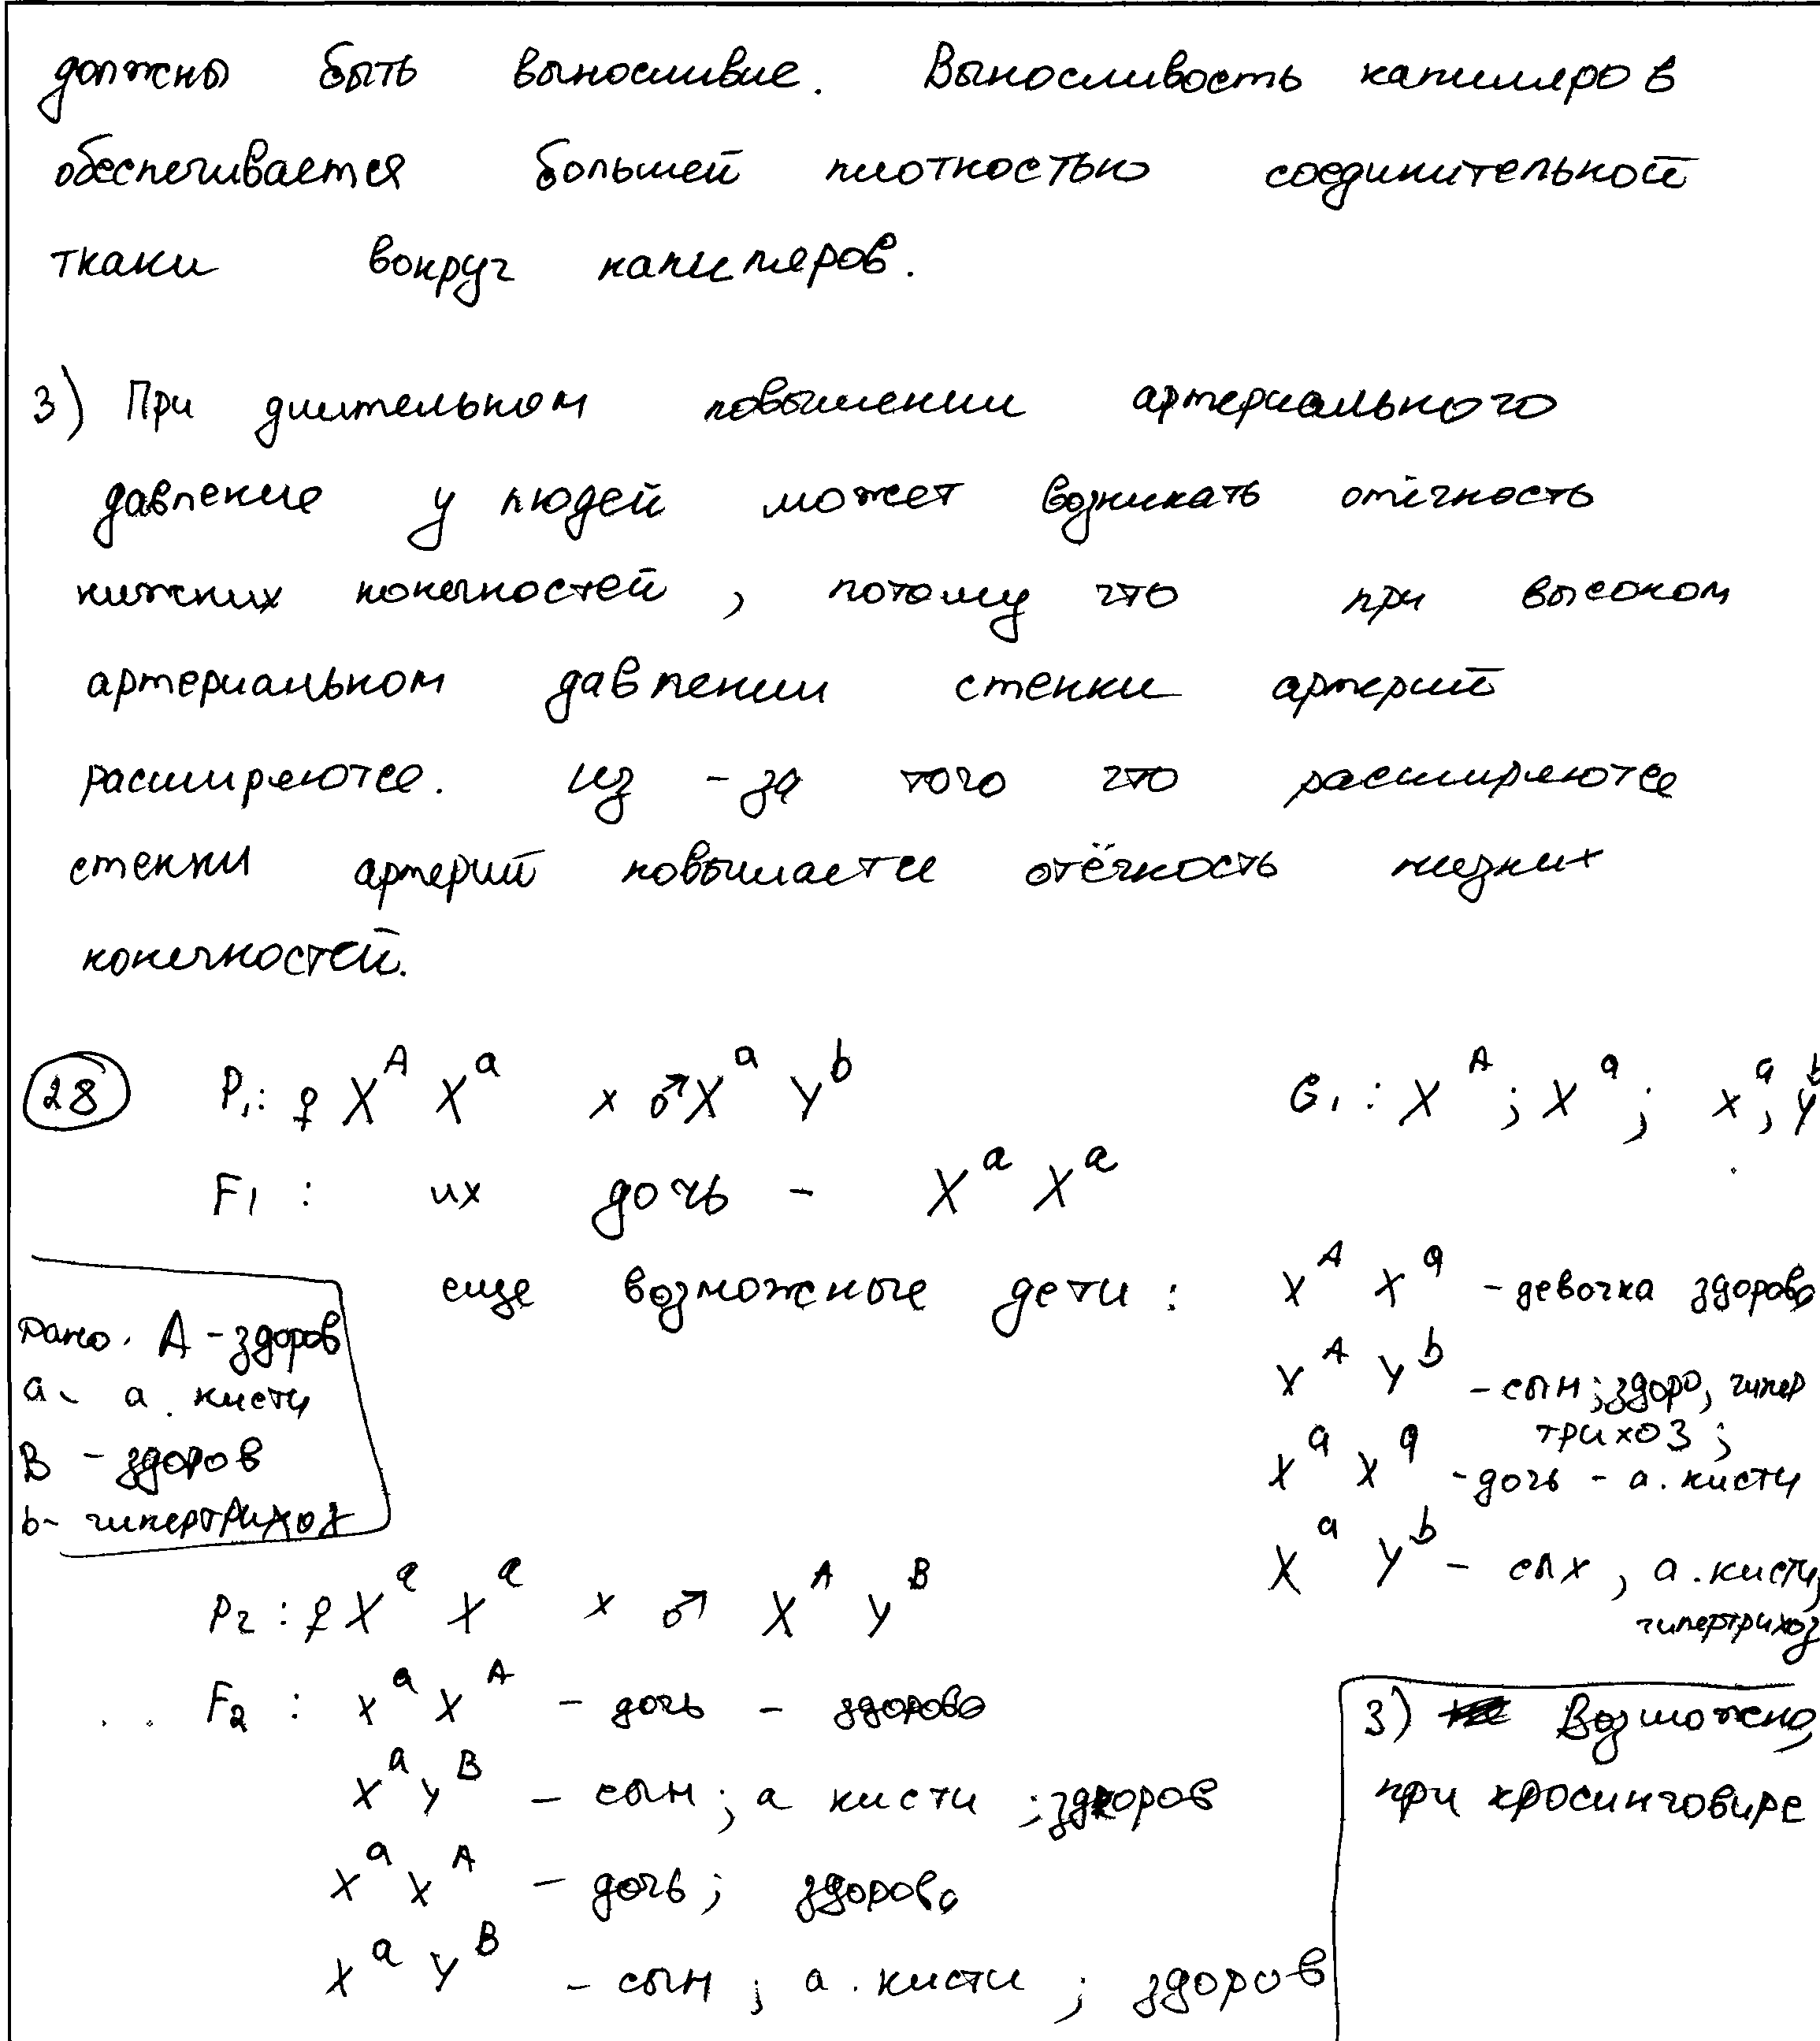 должны быть выносливые. Выносливость капиляров
обеспечивается большей плотностью соединительной
ткани вокруг капиляров.
3) При длительном повышении артериального
давление у людей может возникать отёчность
нижних конечностей, потому что при высоком
артериальном давлении стенки артерий
расширяются. Из-за того что расширяются
стенки артерий повышается отёчность низних
конечностей.
28 P₁: ♀ X^A X^a x ♂ X^a Y^b G₁: X^A; X^a; X^a; Y^b
F₁: их дочь - X^a X^a
еще возможные дети: X^A X^a - девочка здорова
X^A Y^b - сын; здоро, гипер
трихоз;
X^a X^a - дочь - а. кисти
X^a Y^b - сын, а. кисти,
гипертрихоз
Дано. A - здоров
a - а. кисти
B - здоров
b - гипертрихоз
P₂: ♀ X^a X^a x ♂ X^A Y^B
F₂: X^a X^A - дочь - здорова
X^a Y^B - сын; а кисти; здоров
X^a X^A - дочь; здорова
X^a Y^B - сын; а. кисти; здоров
3) Возможно,
при кросинговире